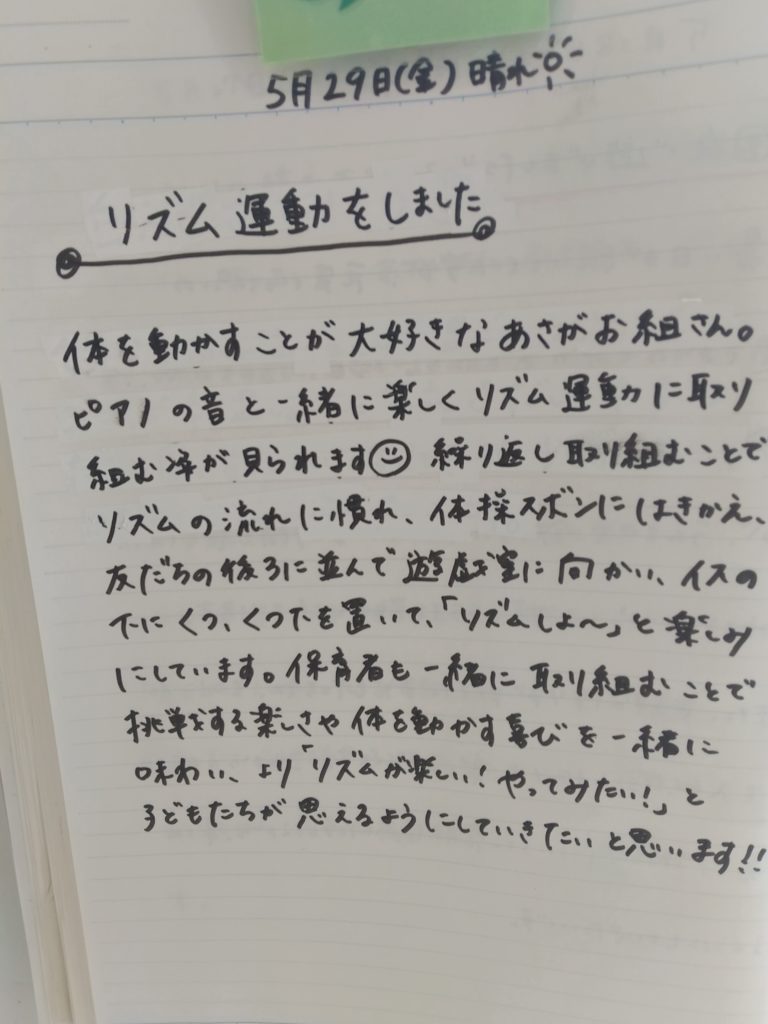 5月29日(金) 晴れ
リズム運動をしました
体を動かすことが大好きなあさがお組さん。
ピアノの音と一緒に楽しくリズム運動に取り
組む姿が見られます 繰り返し取り組むことで
リズムの流れに慣れ、体操ズボンにはきかえ、
友だちの後ろに並んで遊戯室に向かい、イスの
下にくつ、くつ下を置いて、「リズムしよ〜」と楽しみ
にしています。保育者も一緒に取り組むことで
挑戦する楽しさや体を動かす喜びを一緒に
味わい、より「リズムが楽しい!やってみたい!」と
子どもたちが思えるようにしていきたいと思います!!